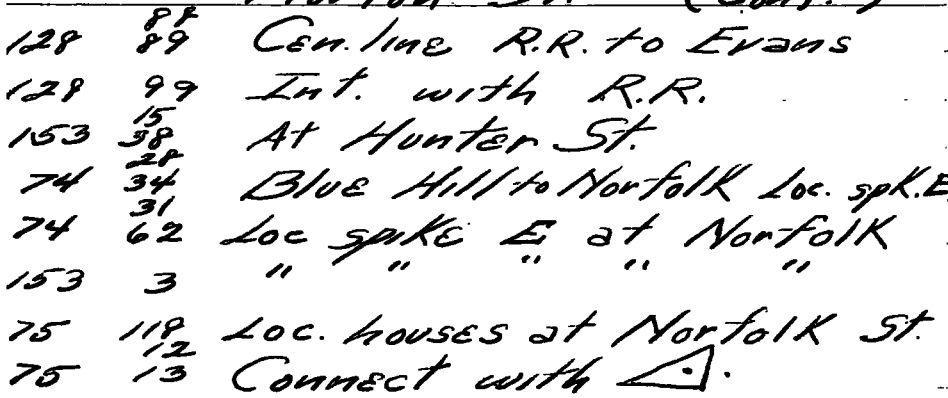 Morton St. (Cont.)
88
128 89 Cen. line R.R. to Evans
128 99 Int. with R.R.
15
153 38 At Hunter St.
28
74 34 Blue Hill to Norfolk Loc. spk. E
31
74 62 Loc spike E at Norfolk
153 3 " " " " "
75 118 Loc. houses at Norfolk St.
12
75 13 Connect with